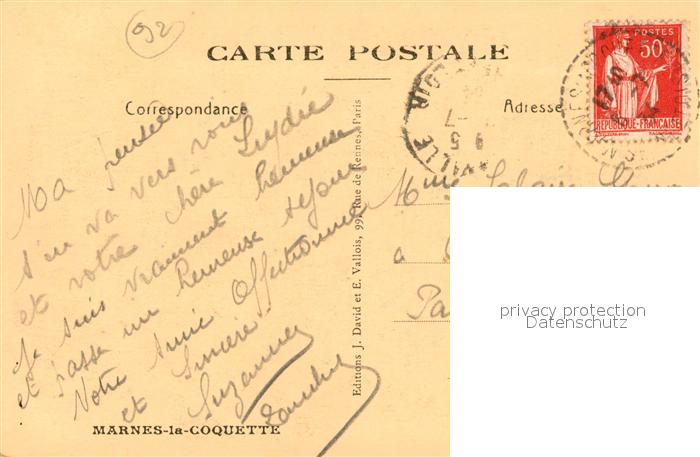 92
CARTE POSTALE
Correspondance
Adresse
POSTES
50c
REPUBLIQUE-FRANÇAISE
Ma pensée
s'en va vers vous
et votre chère Lydie
Je suis vraiment heureuse
et passe un heureuse séjour
Votre amie affectionnée
et sincère
Suzanne
Mme
a
Pa
Editions J. David et E. Vallois, 99, Rue de Rennes, Paris
MARNES-la-COQUETTE
privacy protection
Datenschutz